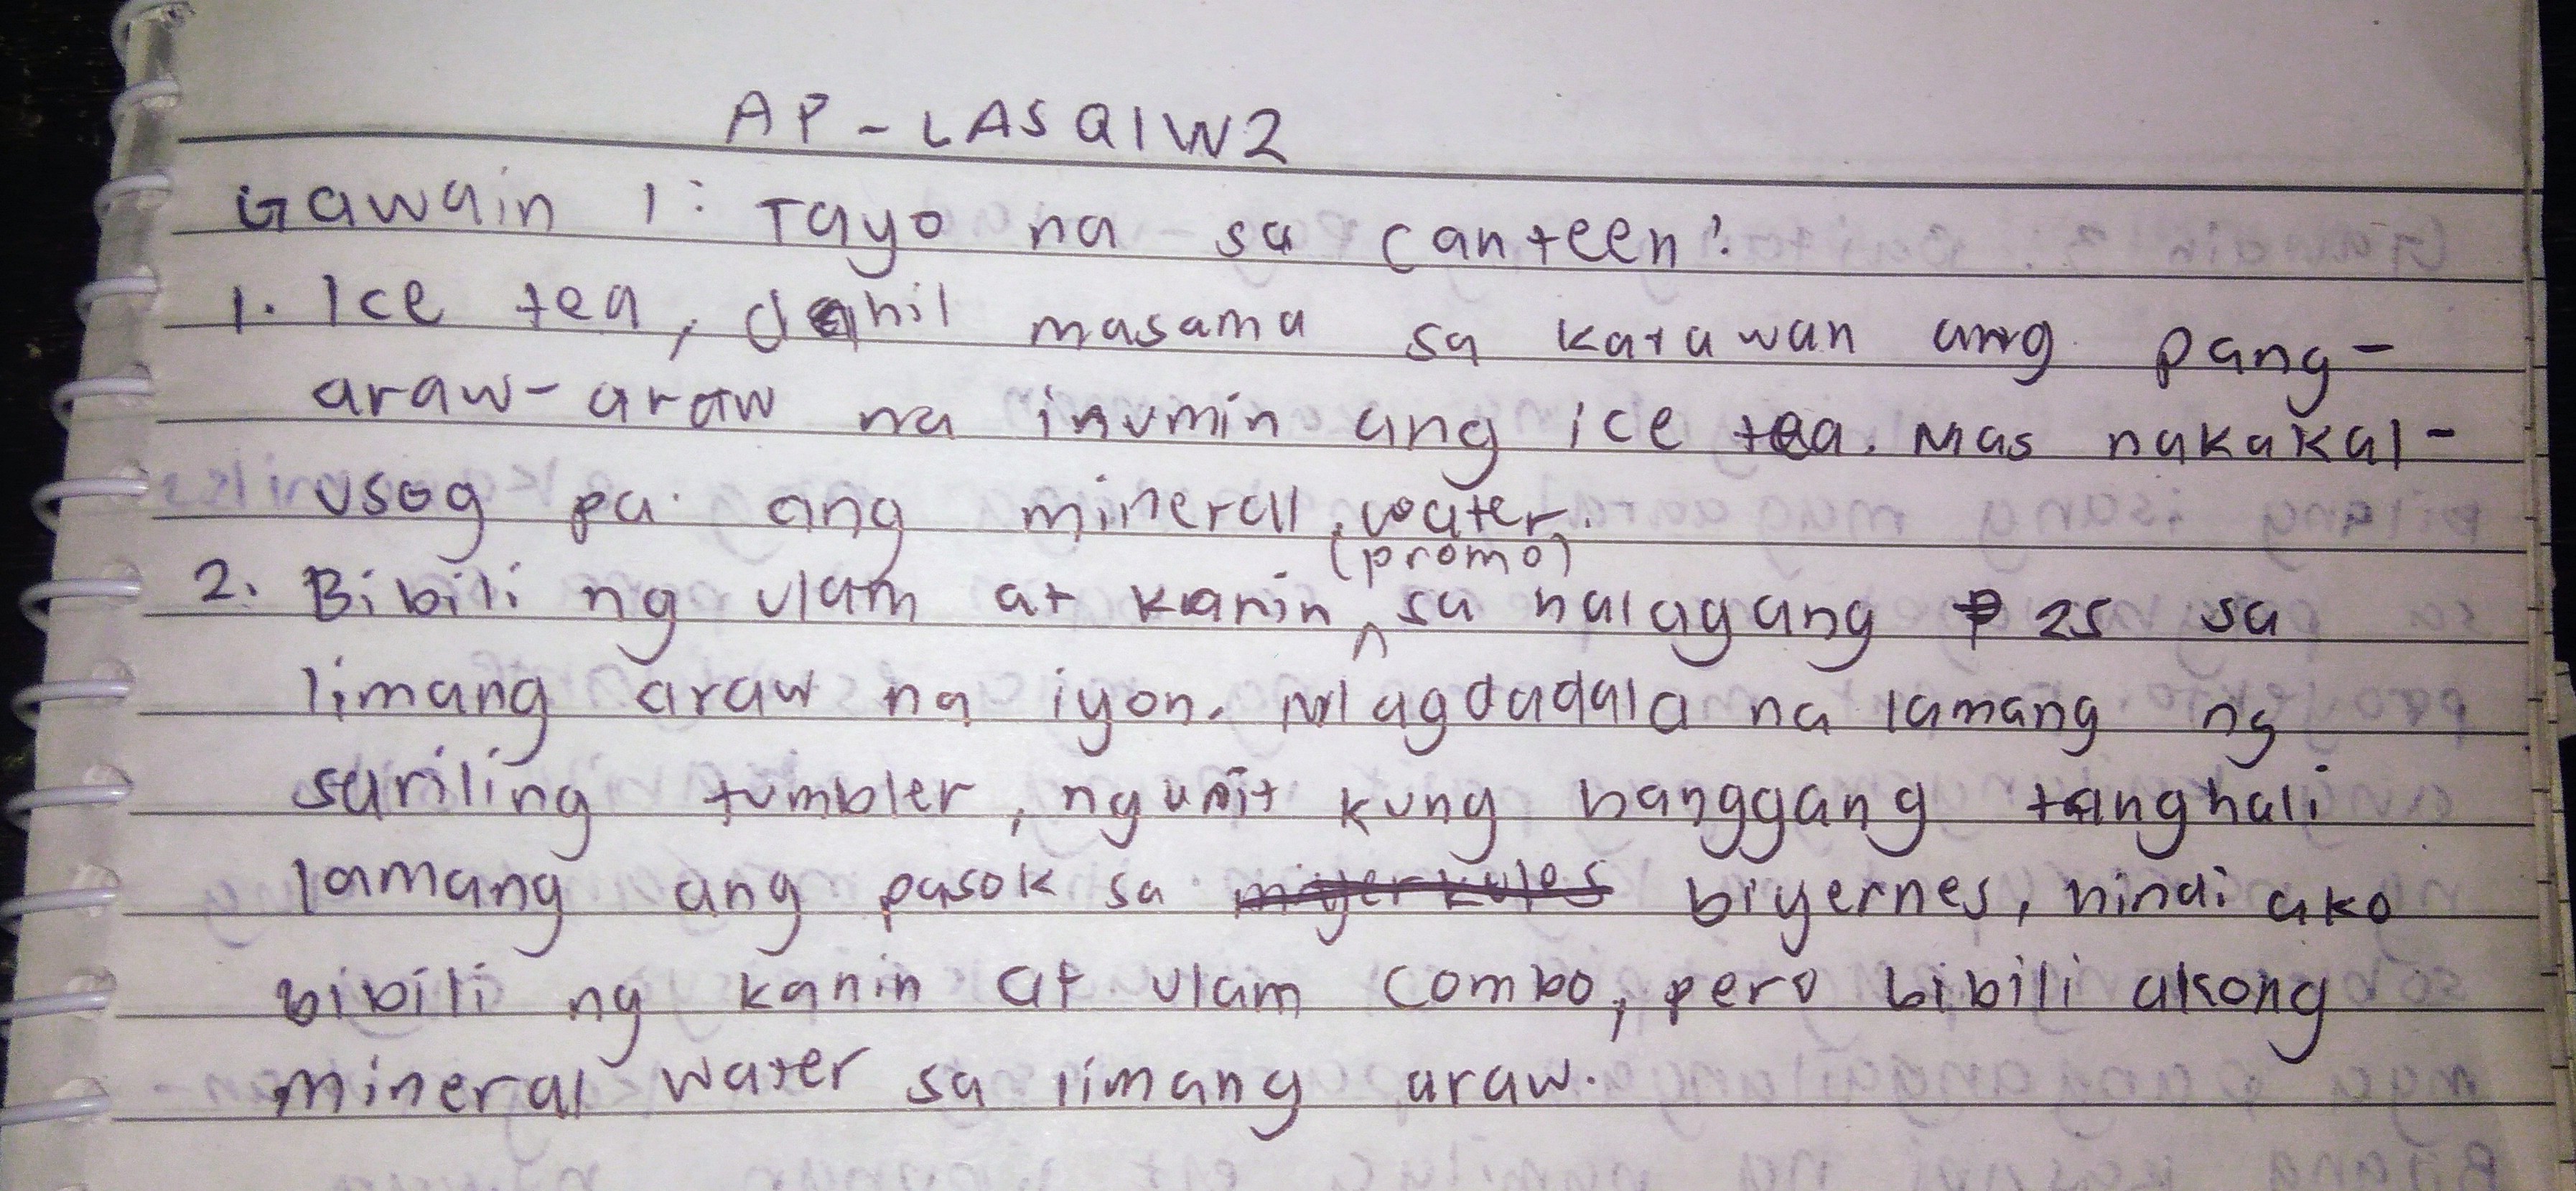 AP - LAS Q1W2
Gawain 1: Tayo na sa canteen!
1. Ice tea, dahil masama sa katawan ang pang-
araw-araw na inumin ang ice tea. Mas nakakal-
usog pa ang minerall water.
(promo)
2. Bibili ng ulam at kanin ^ sa halagang ₱ 25 sa
limang araw na iyon. Magdadala na lamang ng
sariling tumbler, ngunit kung hanggang tanghali
lamang ang pasok sa miyerkules biyernes, hindi ako
bibili ng kanin at ulam combo, pero bibili akong
mineral water sa limang araw.